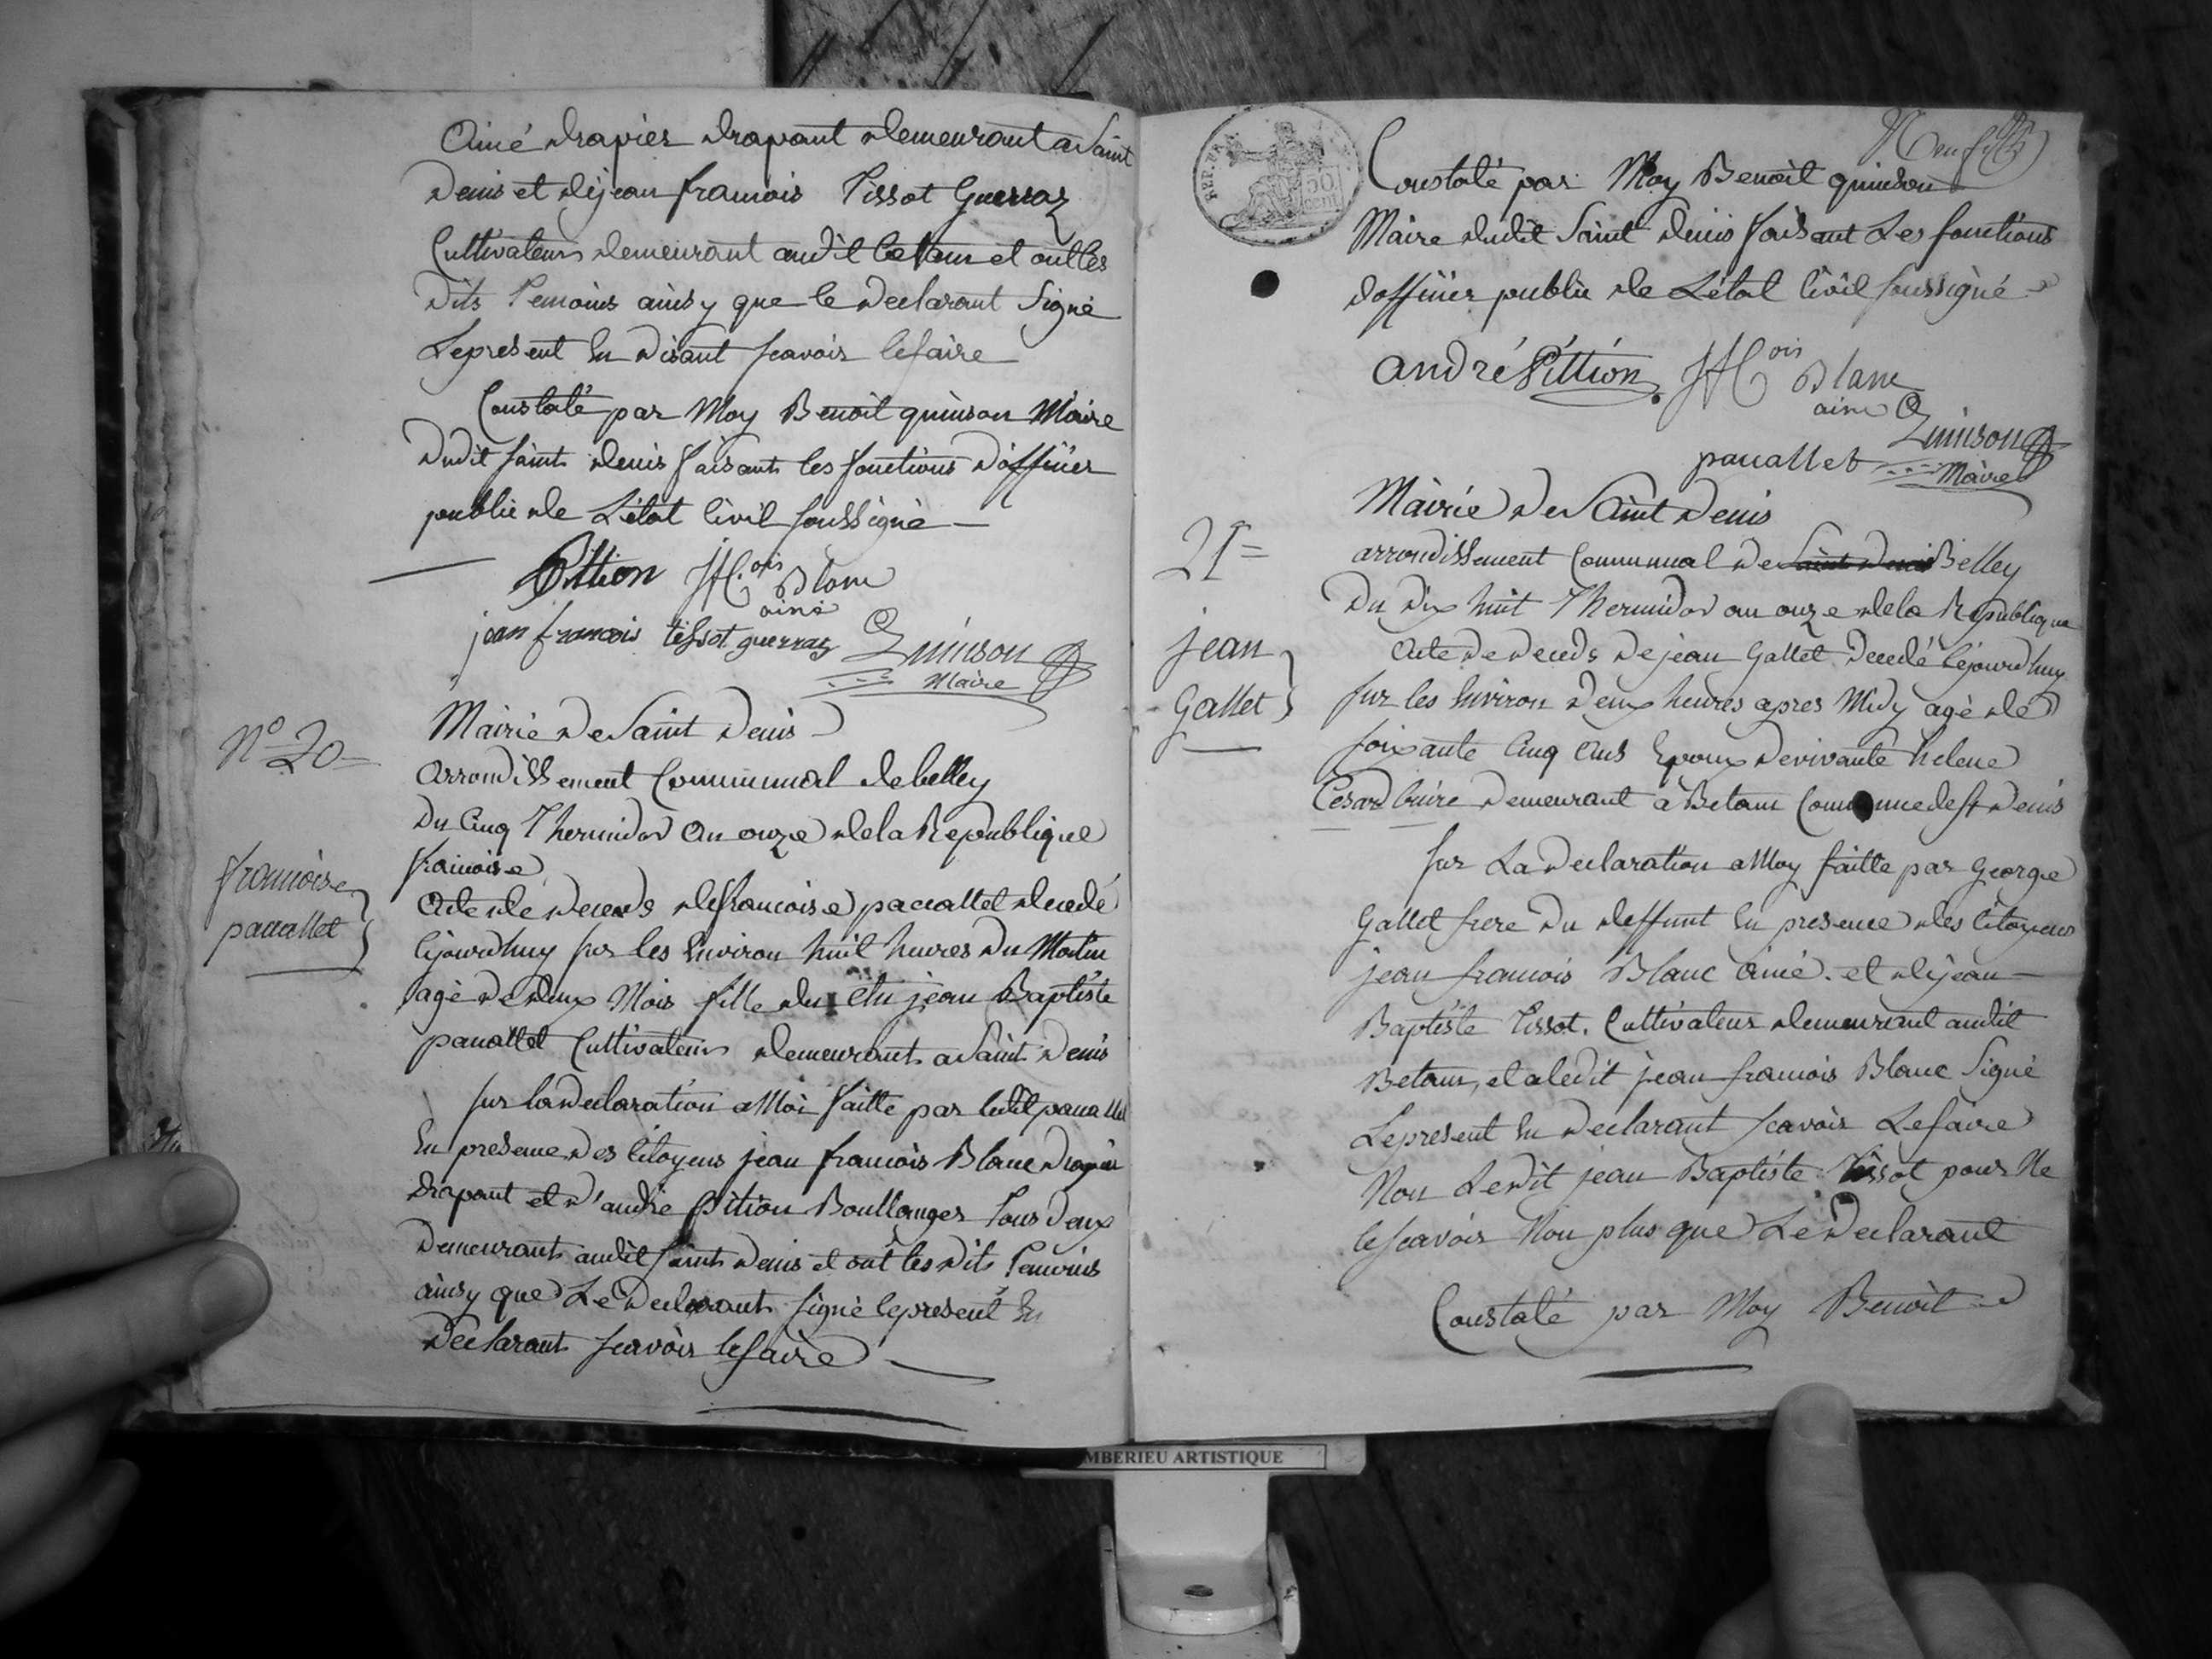 Ainé drapier drapant demeurant a Saint
Denis et de jean francois Tissot Guerraz
Cultivateur demeurant audit Betam et ont les
dits Temoins ainsy que le declarant Signé
Le present En disant scavoir le faire
Constaté par Moy Benoit quinson Maire
Dudit saint denis faisant les fonctions d'officier
public de L'état Civil soussigné
Pittion J F.ois Blanc
ainé
jean francois tissot guerraz Quinson
Maire
N° 20
Mairie De Saint Denis
arrondissement Communal de belley
Du Cinq Thermidor an onze de la Republique
francoise
francoise
pacallet
Acte de decends de francoise pacallet decedé
cejourdhuy sur les Environ huit heures du Matin
agé de deux Mois fille du Cit jean Baptiste
pacallet Cultivateur demeurant a Saint Denis
sur la declaration a Moi faitte par ledit pacallet
En presence des Citoyens jean francois Blanc drapier
drapant et d'andré Pition Boullanger Tous deux
demeurant audit saint denis et ont les dits Temoins
ainsy que Le declarant signé le present En
declarant scavoir le faire
REP. FRA.
50
cent
Neuf
Constaté par Moy Benoit quinson
Maire dudit Saint denis faisant Les fonctions
d'officier public de L'état Civil soussigné
andré Pittion J F.ois Blanc
ainé
pacallet Quinson
Maire
Mairie De Saint Denis
21
arrondissement Communal De Saint Denis Belley
Du Dix huit Thermidor an onze de la Republique
jean
Gallet
Acte de deceds de jean Gallet decedé Cejourdhuy
sur les Environ deux heures apres Midy agé de
soixante Cinq ans Epoux de vivante helene
Cesard buire demeurant à Betam Commune de St denis
sur La declaration a Moy faitte par George
Gallet frere du deffunt En presence des Citoyens
jean francois Blanc ainé et de jean
Baptiste Tissot. Cultivateur demeurant audit
Betam, et a ledit jean francois Blanc Signé
Le present En declarant scavoir Le faire
Non Ledit jean Baptiste Tissot pour Ne
le scavoir Non plus que Le Declarant
Constaté par Moy Benoit
MBERIEU ARTISTIQUE